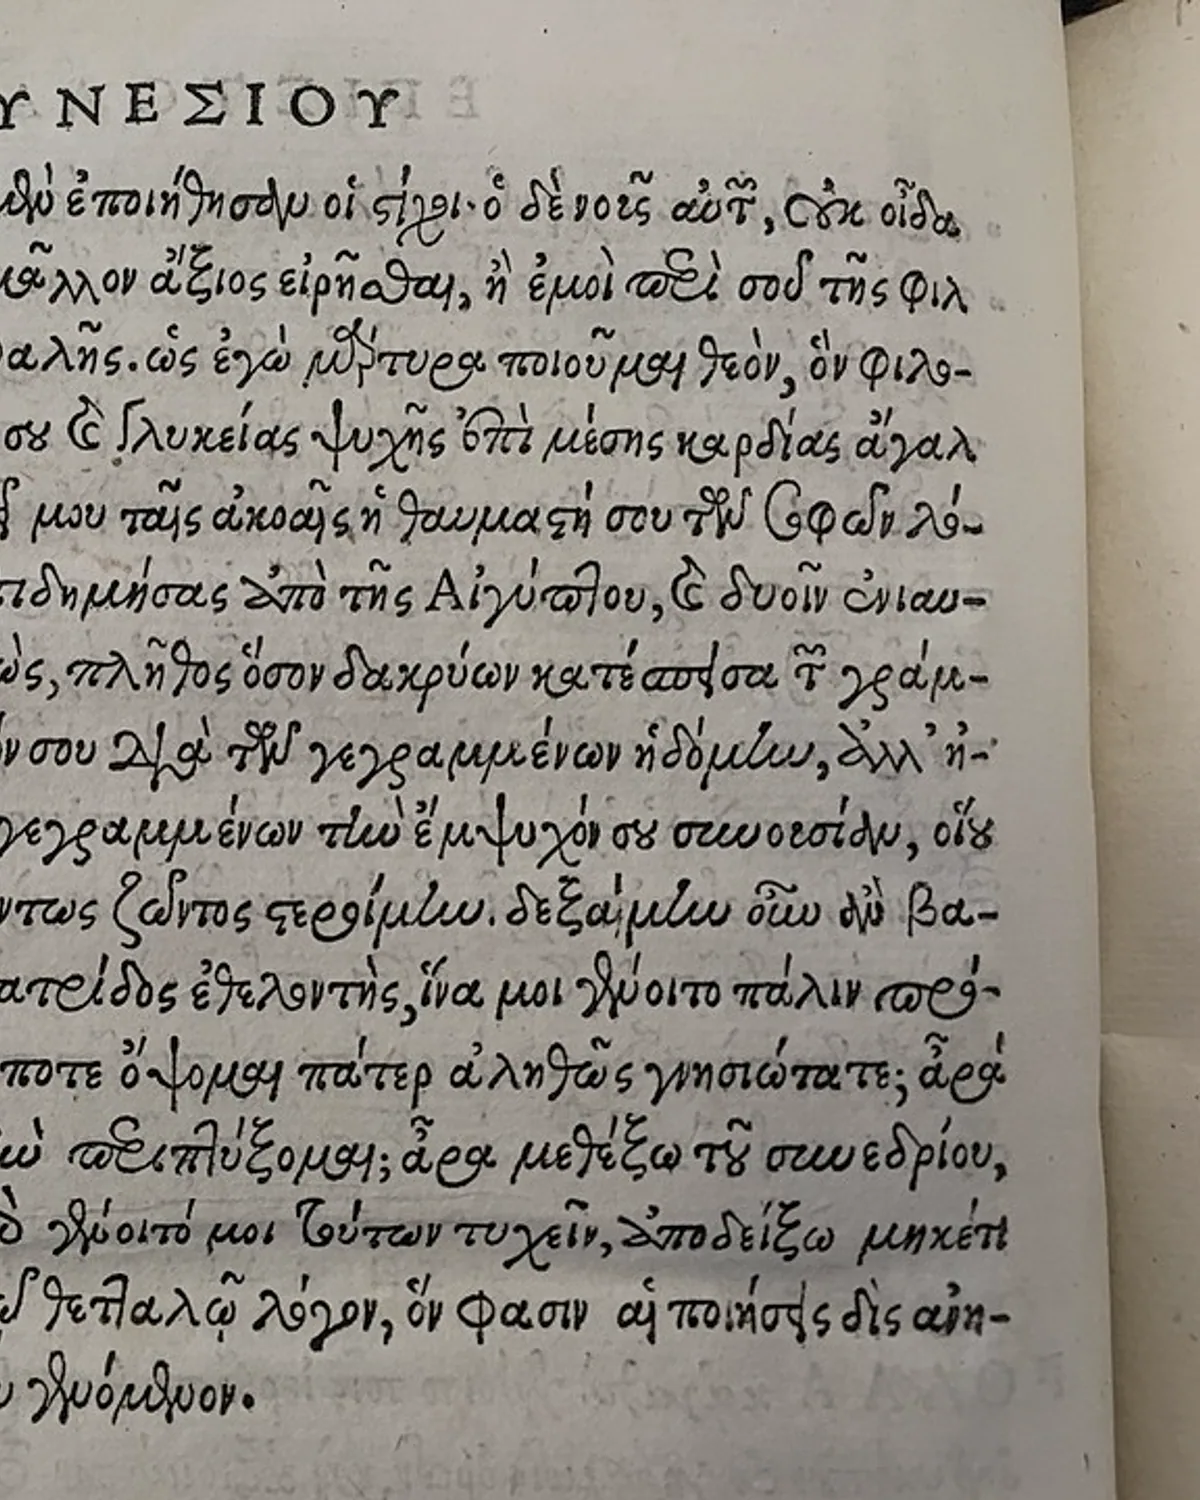 ΥΝΕΣΙΟΥ
ἐποιήθησαν οἱ στίχοι· ὁ δὲ νοῦς αὐτῶν, οὐκ οἶδα
μᾶλλον ἄξιος εἰρῆσθαι, ἢ ἐμοὶ περὶ σοῦ τῆς φιλ
αλῆς. ὡς ἐγὼ μάρτυρα ποιοῦμαι θεὸν, ὃν φιλο-
σου καὶ γλυκείας ψυχῆς ἐπὶ μέσης καρδίας ἄγαλ
μου ταῖς ἀκοαῖς ἡ θαυμαστή σου τῶν σοφῶν λό-
πιδημήσας ἀπὸ τῆς Αἰγύπτου, καὶ δυοῖν ἐνιαυ-
ὼς, πλῆθος ὅσον δακρύων κατέσπεισα τῶν γράμ-
ν σου διὰ τῶν γεγραμμένων ἡδόμην, ἀλλ’ ἠ-
γεγραμμένων τὴν ἔμψυχόν σου συνουσίαν, οἵου
ντως ζῶντος στεροίμην. δεξαίμην οὖν ἂν βα-
ατρίδος ἐθελοντὴς, ἵνα μοι γένοιτο πάλιν πρό-
ποτε ὄψομαι πάτερ ἀληθῶς γνησιώτατε; ἆρά
περιπτύξομαι; ἆρα μεθέξω τοῦ συνεδρίου,
γένοιτό μοι τούτων τυχεῖν, ἀποδείξω μηκέτι
θετταλῷ λόγον, ὅν φασιν αἱ ποιήσεις δὶς ἀνη-
γενόμενον.